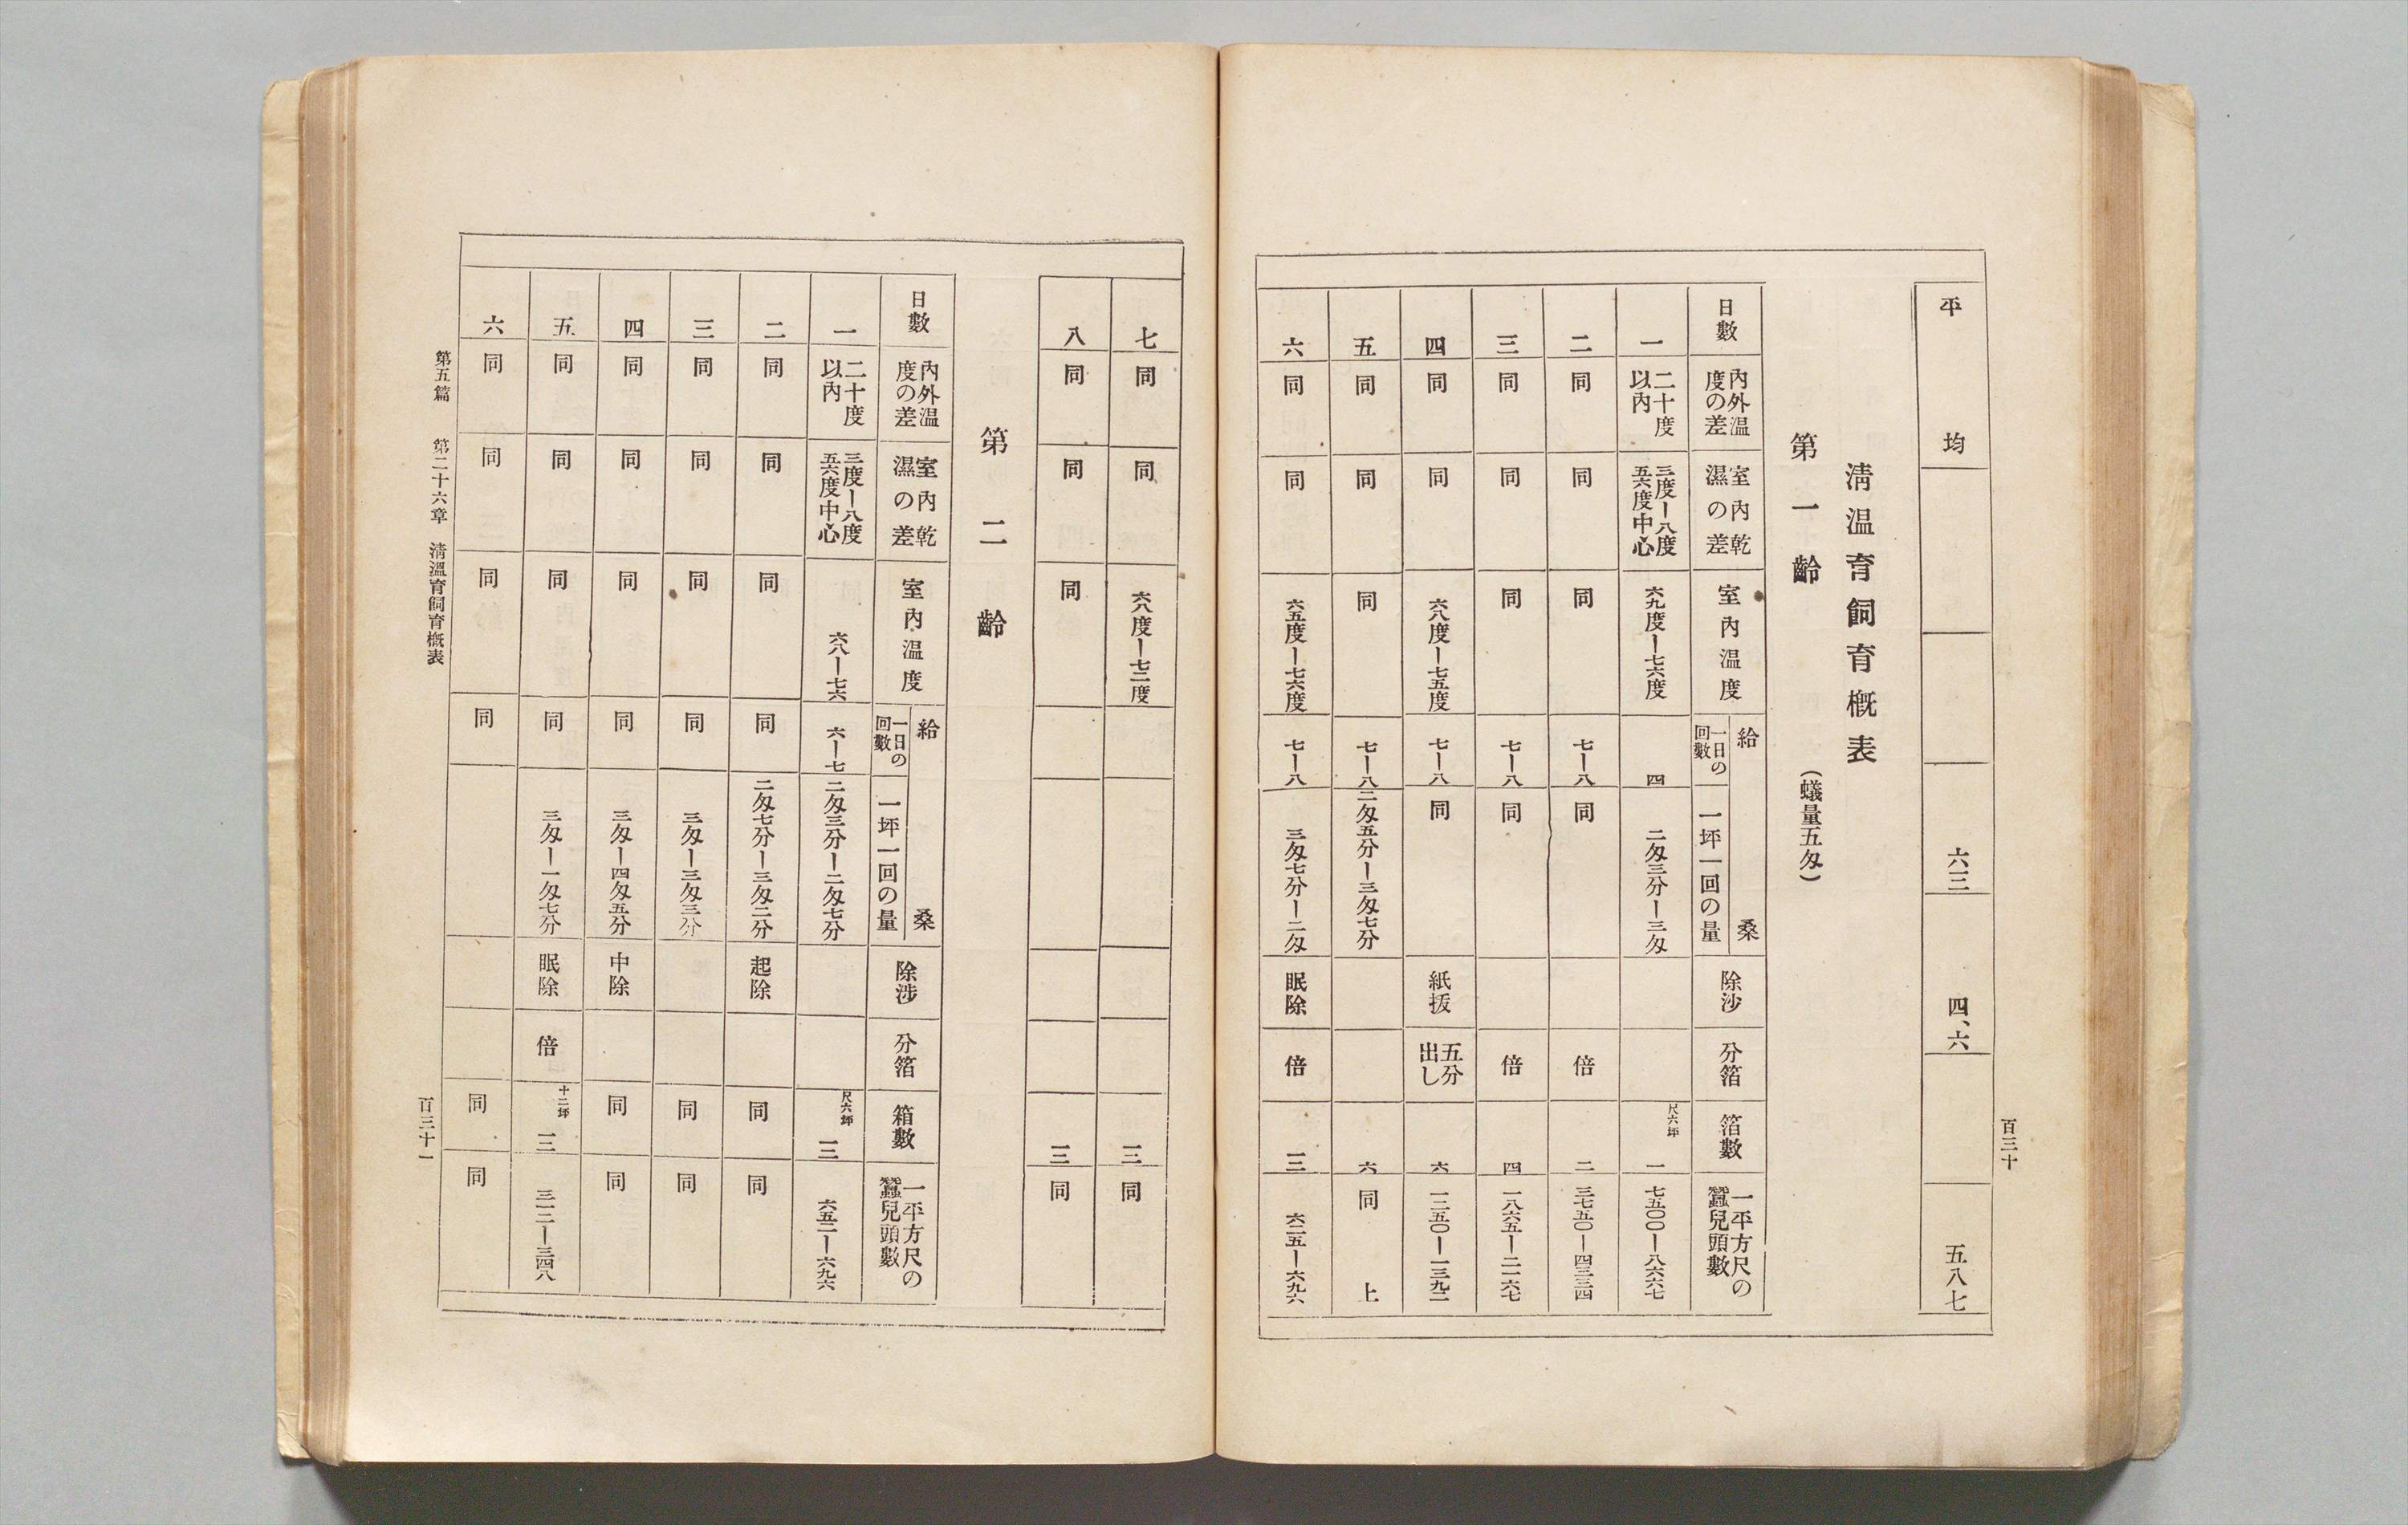 百三十
平均 六三 四、六 五八七
淸温育飼育概表
第一齡 (蟻量五匁)
日數 內外温度の差 室內乾濕の差 室內温度 給桑 一日の回數 一坪一回の量 除沙 分箔 箔數 一平方尺の蠶兒頭數
一 二十度以內 三度ー八度五六度中心 六九度ー七六度 四 二匁三分ー三匁 尺六坪 一 七五〇〇ー八六六七
二 同 同 同 七ー八 同 倍 二 三七五〇ー四三三四
三 同 同 同 七ー八 同 倍 四 一八六五ー二一六七
四 同 同 六八度ー七五度 七ー八 同 紙拔 五分出し 六 一二五〇ー一三九二
五 同 同 同 七ー八 二匁五分ー三匁七分 六 同上
六 同 同 六五度ー七六度 七ー八 三匁七分ー二匁 眠除 倍 三 六二五ー六九六
七 同 同 六八度ー七二度 三 同
八 同 同 同 三 同
第二齡
日數 內外温度の差 室內乾濕の差 室內温度 給桑 一日の回數 一坪一回の量 除涉 分箔 箱數 一平方尺の蠶兒頭數
一 二十度以內 三度ー八度五六度中心 六八ー七六 六ー七 二匁三分ー二匁七分 尺六坪 三 六五二ー六九六
二 同 同 同 同 二匁七分ー三匁二分 起除 同 同
三 同 同 同 同 三匁ー三匁三分 同 同
四 同 同 同 同 三匁ー四匁五分 中除 同 同
五 同 同 同 同 三匁ー一匁七分 眠除 倍 十二坪 三 三二二ー三四八
六 同 同 同 同 同 同
第五篇 第二十六章 淸溫育飼育概表
百三十一